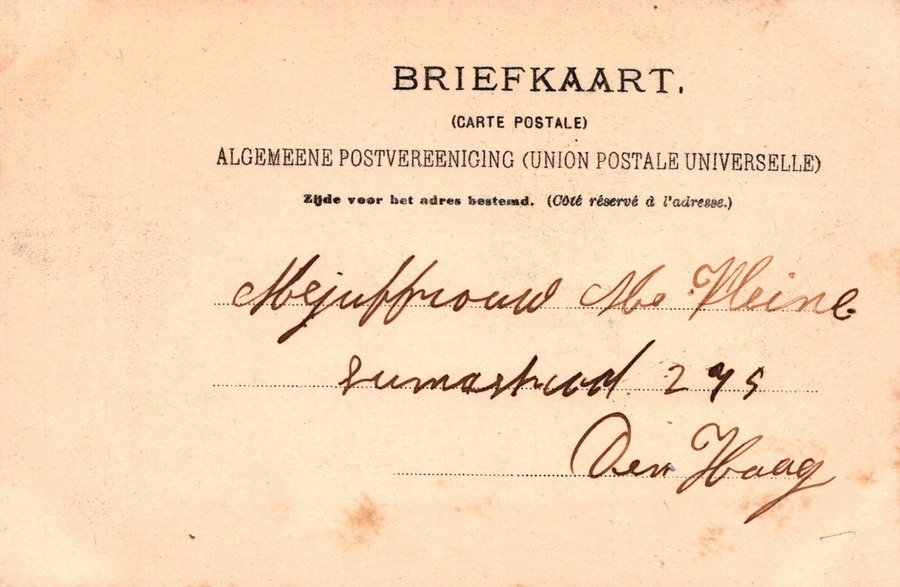 BRIEFKAART.
(CARTE POSTALE)
ALGEMEENE POSTVEREENIGING (UNION POSTALE UNIVERSELLE)
Zijde voor het adres bestemd. (Côté réservé à l'adresse.)
Mejuffrouw Me Kleine
Den Haag